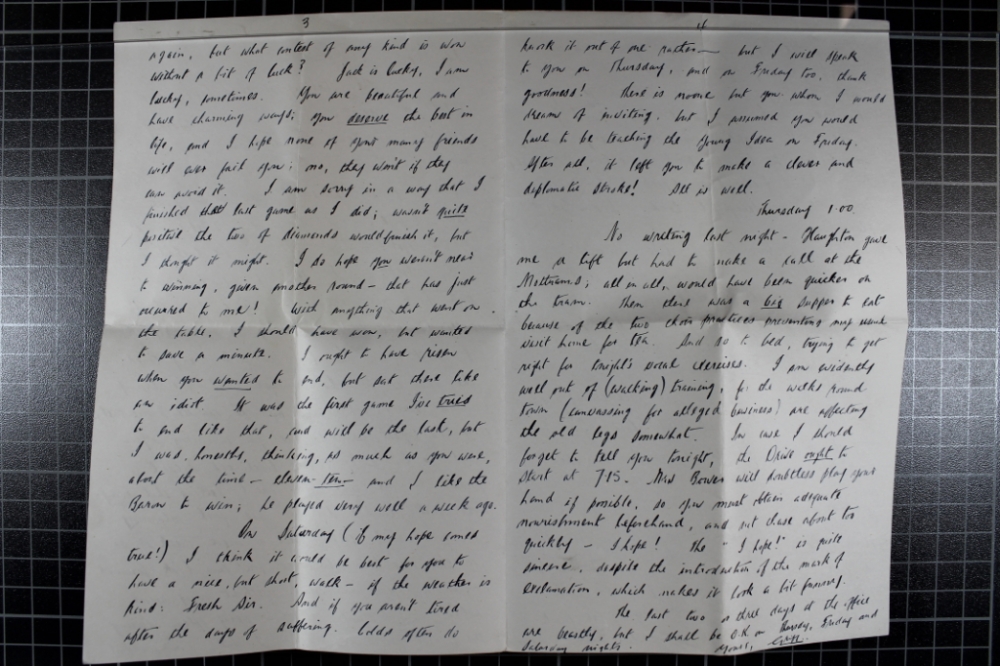 3
again, but what contest of any kind is won
without a bit of luck? Jack is lucky, I am
lucky, sometimes. You are beautiful and
have charming ways; you deserve the best in
life, and I hope none of your many friends
will ever fail you; no, they won't if they
can avoid it. I am sorry in a way that I
finished that last game as I did; wasn't quite
positive the two of diamonds would finish it, but
I thought it might. I do hope you weren't near
to winning, given another round - that has just
occurred to me! With anything that went on
the table, I should have won, but wanted
to save a minute. I ought to have risen
when you wanted to end, but sat there like
an idiot. It was the first game I've tried
to end like that, and will be the last, but
I was, honestly, thinking, as much as you were,
about the time - eleven-ten - and I like the
Baron to win; he played very well a week ago.
On Saturday (if my hope comes
true!) I think it would be best for you to
have a nice, but short, walk - if the weather is
kind: Fresh Air. And if you aren't tired
after the days of suffering. Colds often do
4
knock it out of me rather - but I will speak
to you on Thursday, and on Friday too, thank
goodness! There is no one but you whom I would
dream of inviting, but I assumed you would
have to be teaching the Young Idea on Friday.
After all, it left you to make a clever and
diplomatic stroke! All is well.
Thursday 1.00.
No writing last night - Haughton gave
me a lift but had to make a call at the
Mottrams; all in all, would have been quicker on
the tram. Then there was a big supper to eat
because of the two choir practices preventing my usual
visit home for tea. And so to bed, trying to get
right for tonight's vocal exercises. I am evidently
well out of (walking) training, for the walks round
town (canvassing for alleged business) are affecting
the old legs somewhat. In case I should
forget to tell you tonight, the Drive ought to
start at 7.15. Mrs Bower will doubtless play your
hand if possible, so you must obtain adequate
nourishment beforehand, and not chase about too
quickly - I hope! The "I hope!" is quite
sincere, despite the introduction of the mark of
exclamation, which makes it look a bit funny.
The last two or three days at the office
are beastly, but I shall be O.K. on Thursday, Friday and
Saturday nights. Yours,